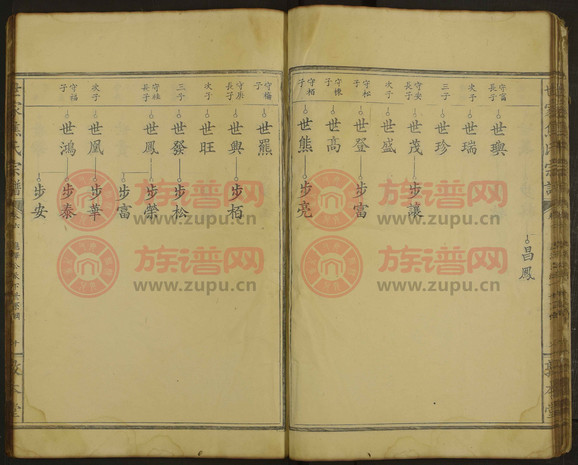 守富
世璵
次子
世瑞
三子
世珍
守安
長子
世茂
步讓
次子
世盛
守松
子
世登
步富
守棟
子
世高
守栢
子
世熊
步亮
昌鳳
守楊
子
世羆
守樂
長子
世興
步栢
次子
世旺
三子
世發
步松
長子
世鳳
步榮
步富
次子
世凰
步華
守福
子
世鴻
步泰
步安
世家焦氏宗譜
敦本堂
族谱网
www.zupu.cn
族谱网
www.zupu.cn
族谱网
www.zupu.cn
族谱网
www.zupu.cn